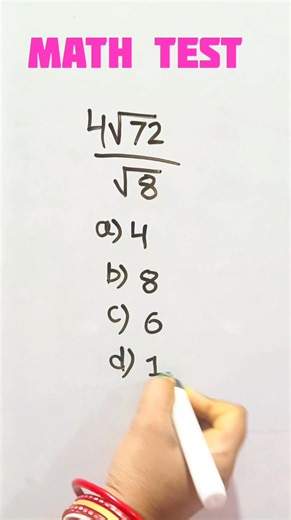 MATH TEST
4√72
√8
a) 4
b) 8
c) 6
d) 1